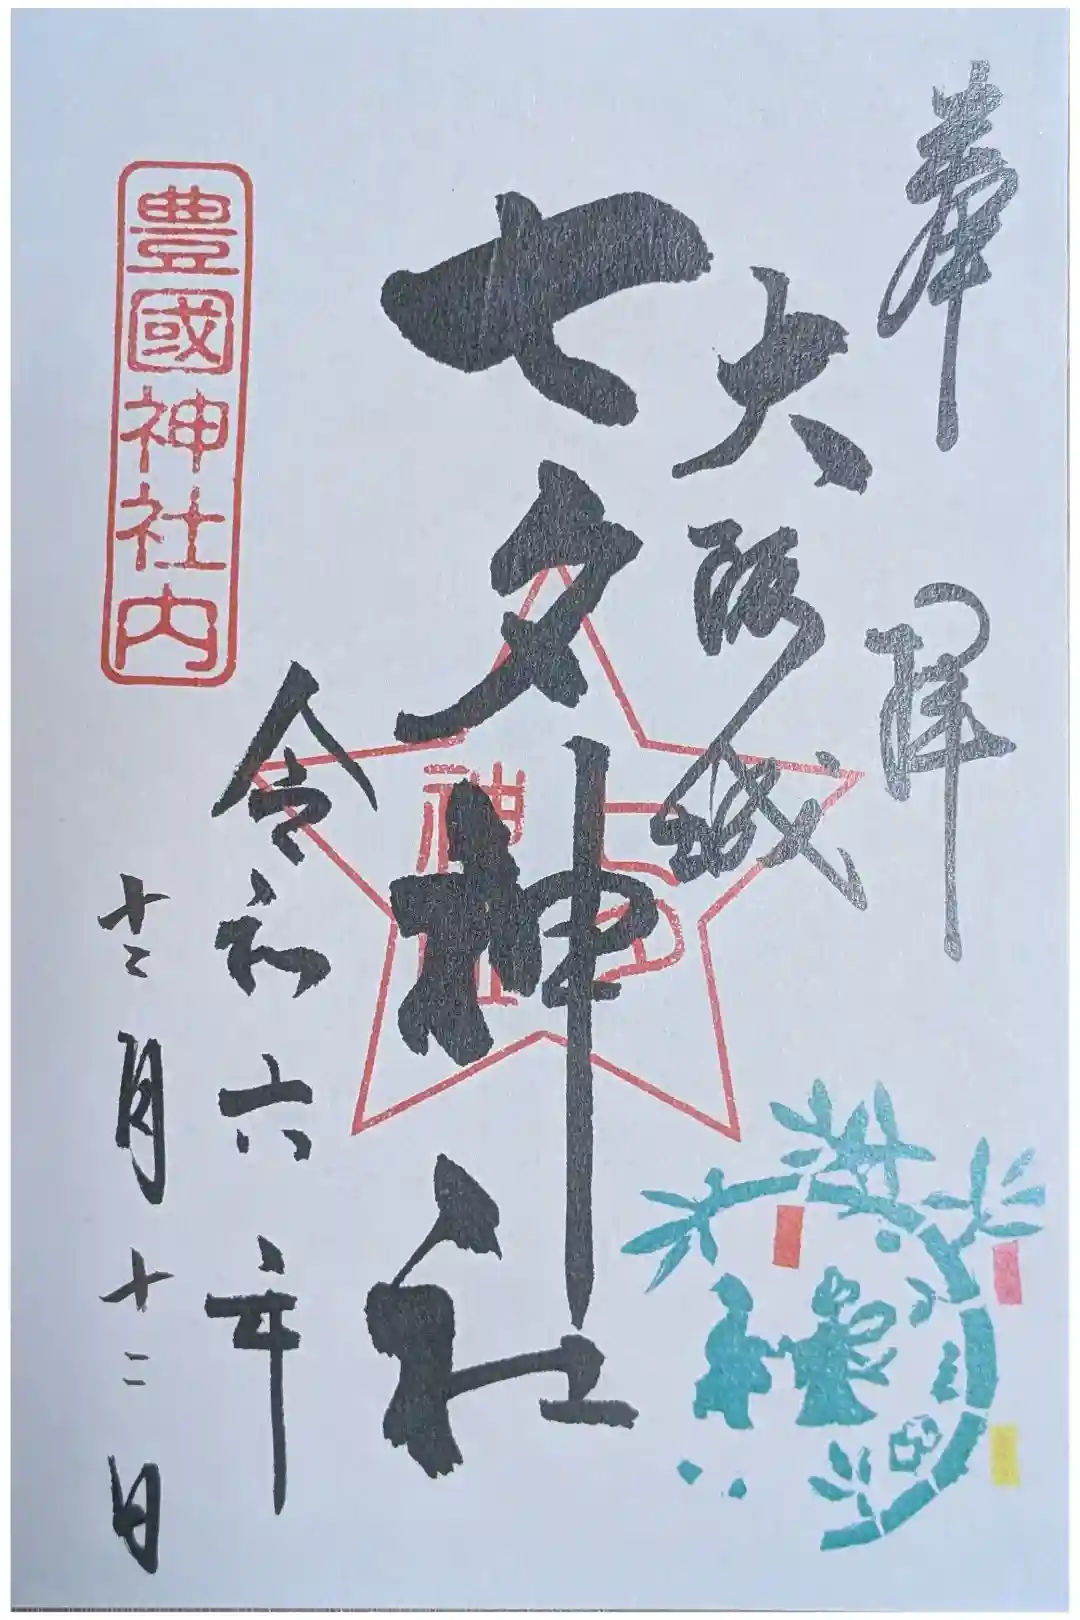 奉拝
大阪城
七夕神社
七夕神社
令和六年
十二月十二日
豊國神社内